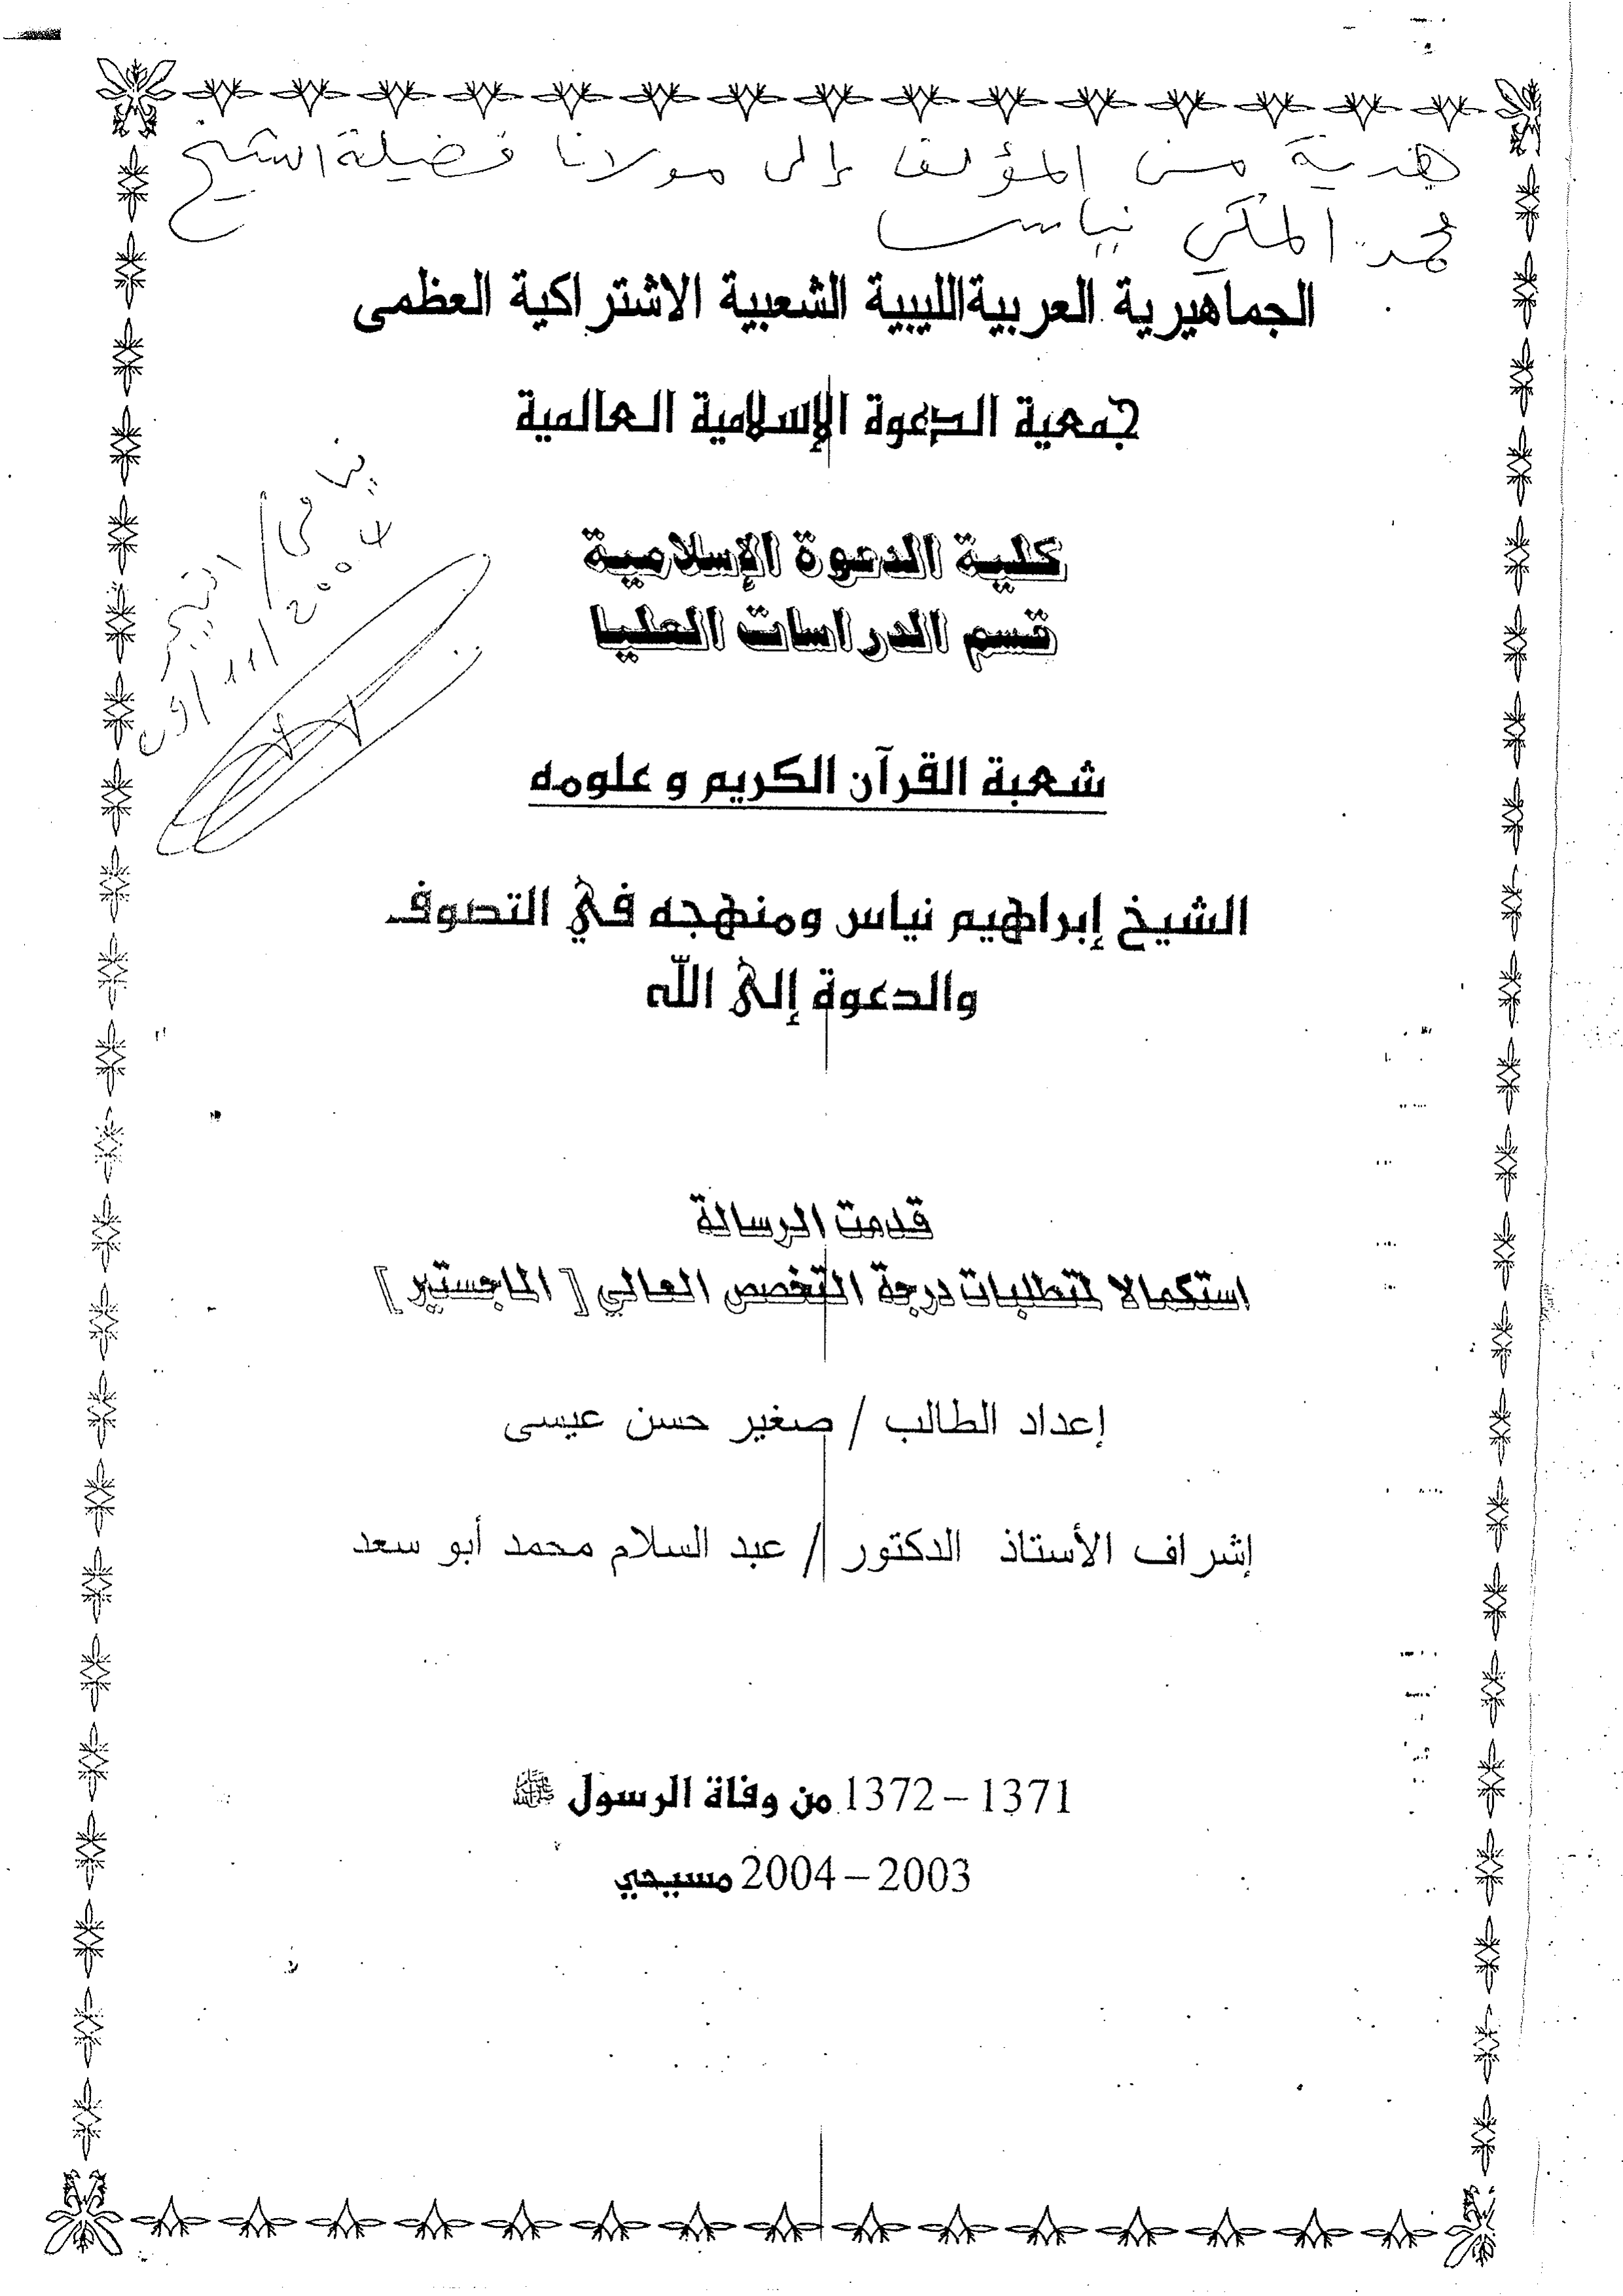 هدية من المؤلف إلى مولانا فضيلة الشيخ
محمد المكي نياس
الجماهيرية العربية الليبية الشعبية الاشتراكية العظمى
جمعية الدعوة الإسلامية العالمية
كلية الدعوة الإسلامية
قسم الدراسات العليا
شعبة القرآن الكريم و علومه
الشيخ إبراهيم نياس ومنهجه في التصوف
والدعوة إلى الله
قدمت الرسالة
استكمالا لمتطلبات درجة التخصص العالي [ الماجستير ]
إعداد الطالب / صغير حسن عيسى
إشراف الأستاذ الدكتور / عبد السلام محمد أبو سعد
1371 – 1372 من وفاة الرسول ﷺ
2003 – 2004 مسيحي